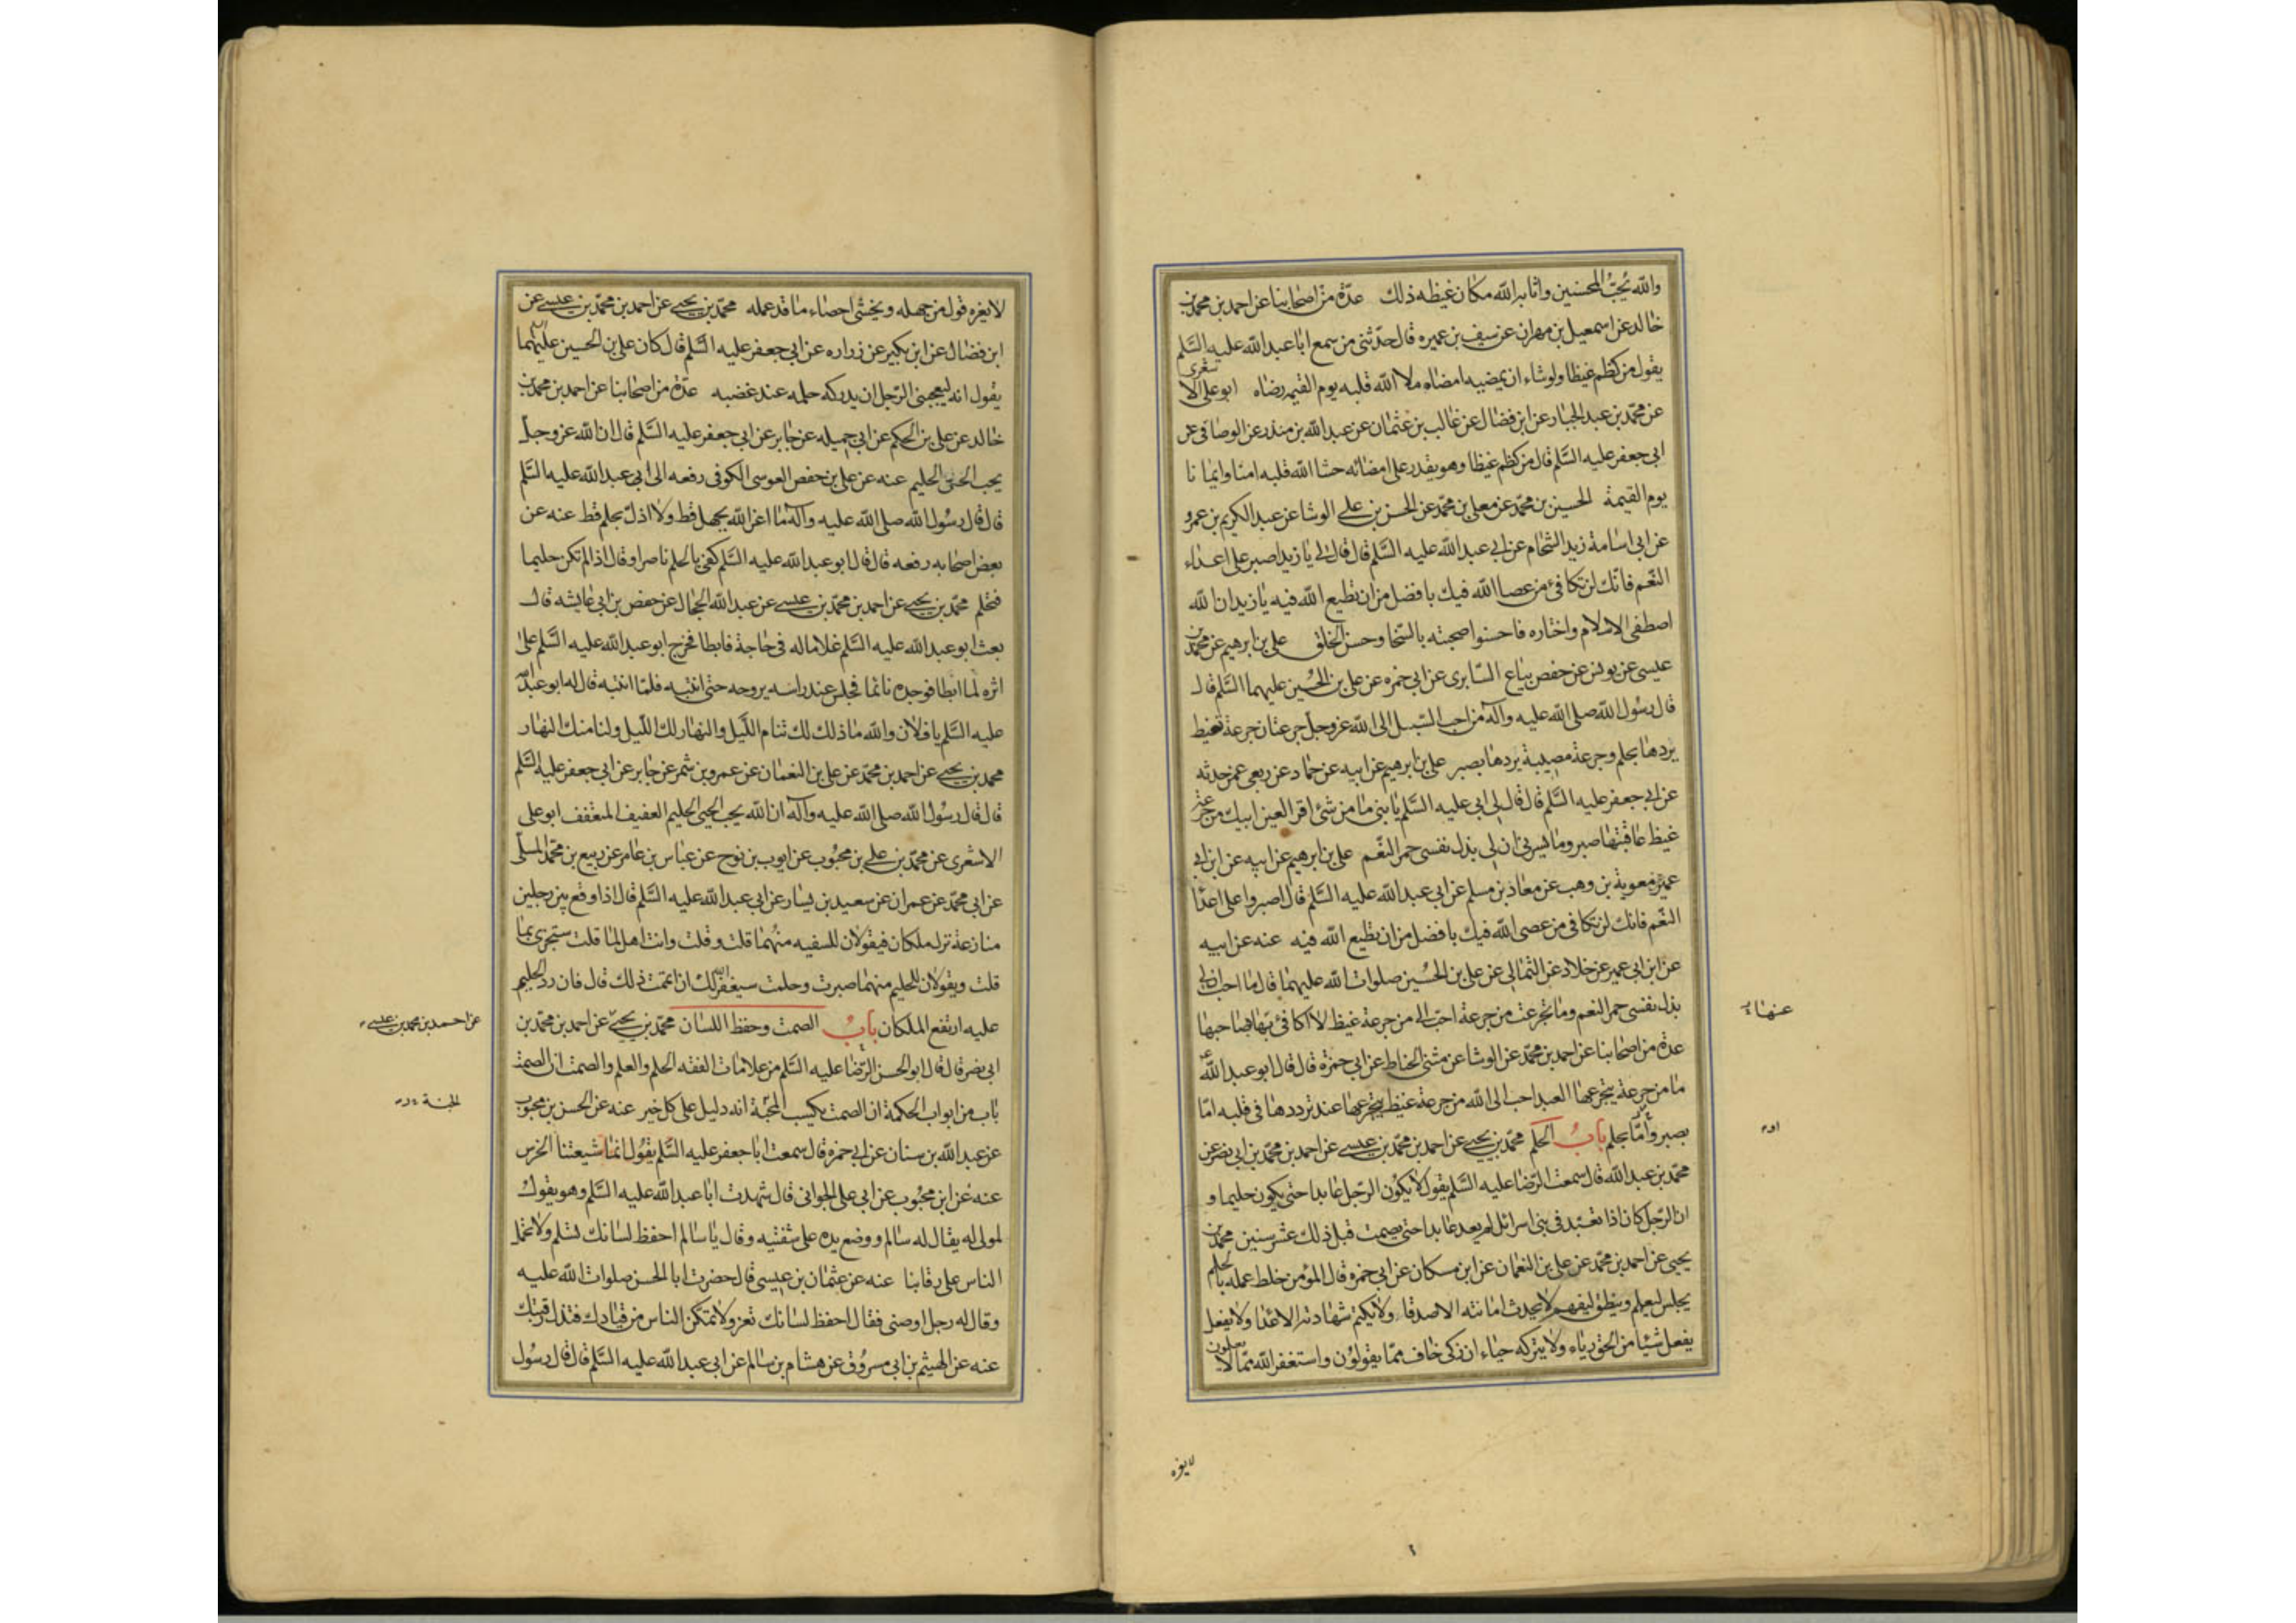 والله يُحِبُّ المحسنين واثابه الله مكان غيظه ذلك عدّة من اصحابنا عن احمد بن محمد بن
خالد عن اسمعيل بن مهران عن سيف بن عميره قال حدّثني من سمع ابا عبد الله عليه السَّلم
يقول من كظم غيظا ولو شاء ان يمضيه امضاه ملا الله قلبه يوم القيمه رضاه ابو علي الا
شعرى
عن محمّد بن عبد الجبار عن ابن فضال عن غالب بن عثمان عن عبد الله بن منذر عن الوصافى عن
ابي جعفر عليه السَّلم قال من كظم غيظا وهو يقدر على امضائه حشا الله قلبه امنا وايمانا
يوم القيمة الحسين بن محمّد عن معلى بن محمّد عن الحسن بن علي الوشا عن عبد الكريم بن عمرو
عن ابى اسامة زيد الشحام عن ابي عبد الله عليه السَّلم قال قال لي يا زيد اصبر على اعداء
النّعم فانّك لن تكافئ من عصا الله فيك بافضل من ان تطيع الله فيه يا زيد ان الله
اصطفى الاسلام واختاره فاحسنوا صحبته بالسّخا وحسن الخلق علي بن ابرهيم عن محمّد بن
عيسى عن يونس عن حفص بيّاع السّابرى عن ابي حمزه عن علي بن الحُسين عليهما السَّلم قال
قال رسُول الله صلى الله عليه وآله من احب السّبيل الى الله عز وجل جرعتان جرعة غيظ
يردها بحلم وجرعة مصيبة يردها بصبر علي بن ابرهيم عن ابيه عن حماد عن ربعى عمن حدثه
عن ابي جعفر عليه السَّلم قال قال لي ابي عليه السَّلم يا بنى ما من شئ اقر لعين ابيك من جرعة
غيظ عاقبتها صبر وما يسرنى ان لي بذل نفسى حمر النّعم علي بن ابرهيم عن ابيه عن ابن ابي
عمير عن معوية بن وهب عن معاذ بن مسلم عن ابي عبد الله عليه السَّلم قال اصبروا على اعدا
النّعم فانك لن تكافى من عصى الله فيك بافضل من ان تطيع الله فيه عنه عن ابيه
عن ابن ابى عمير عن خلاد عن الثمالي عن علي بن الحُسين صلوات الله عليهما قال ما احب ان لي
بذل نفسى حمر النعم وما تجرعت من جرعة احبّ الي من جرعة غيظ لا اكافئ بها صاحبها
عنها
عدة من اصحابنا عن احمد بن محمّد عن الوشا عن مثنى الحناط عن ابي حمزة قال قال ابو عبد الله
ما من جرعة يتجرعها العبد احب الى الله من جرعة غيظ يتجرعها عند ترددها فى قلبه امّا
بصبر وامّا بحلم بابُ الحلم محمّد بن يحيي عن احمد بن محمّد بن عيسي عن احمد بن محمّد بن ابي نصر عن
محمّد بن عبد الله قال سمعت الرّضا عليه السَّلم يقول لا يكون الرّجل عابدا حتى يكون حليما و
ان الرّجل كان اذا تعبّد في بنى اسرائل لم يعد عابدا حتى يصمت قبل ذلك عشر سنين محمّد بن
يحيى عن احمد بن محمّد عن علي بن النعمان عن ابن مسكان عن ابي حمزه قال المؤمن خلط عمله بالحلم
يجلس ليعلم وينطق ليفهم لا يحدث امانته الاصدقا ولا يكتم شهادته الاعدا ولا يفعل
يفعل شيئا من الحق رياء ولا يتركه حياء ان زكى خاف ممّا يقولون واستغفر الله ممّا لا
يعلمون
لا يغره
لا يغره قول من جهله ويخشى احصاء ما قد عمله محمّد بن يحيي عن احمد بن محمّد بن عيسي عن
ابن فضال عن ابن بكير عن زراره عن ابي جعفر عليه السَّلم قال كان علي بن الحسين عليهما
يقول انه ليعجبنى الرّجل ان يدركه حلمه عند غضبه عدّة من اصحابنا عن احمد بن محمّد بن
خالد عن علي بن الحكم عن ابي جميله عن جابر عن ابي جعفر عليه السَّلم قال ان الله عز وجل
يحب الحيى الحليم عنه عن علي بن حفص العوسى الكوفى رفعه الى ابي عبد الله عليه السَّلم
قال قال رسُول الله صلى الله عليه وآله ما اعز الله بجهل قط ولا اذلّ بحلم قط عنه عن
بعض اصحابه رفعه قال قال ابو عبد الله عليه السَّلم كفى بالحلم ناصرا وقال اذا لم تكن حليما
فتحلم محمّد بن يحيي عن احمد بن محمّد بن عيسي عن عبد الله الحجال عن حفص بن ابي عايشه قال
بعث ابو عبد الله عليه السَّلم غلاما له فى حاجة فابطا فخرج ابو عبد الله عليه السَّلم على
اثره لما ابطا فوجده نائما فجلس عند راسه يروحه حتى انتبه فلمّا انتبه قال له ابو عبد الله
عليه السَّلم يا فلان والله ما ذلك لك تنام اللّيل والنهار لك اللّيل ولنا منك النهار
محمد بن يحيي عن احمد بن محمّد عن علي بن النعمان عن عمرو بن شمر عن جابر عن ابي جعفر عليه السَّلم
قال قال رسُول الله صلى الله عليه وآله ان الله يحب الحيى الحليم العفيف المتعفف ابو على
الاشعرى عن محمّد بن علي بن محبُوب عن ايوب بن نوح عن عباس بن عامر عن ربيع بن محمّد المسلّى
عن ابى محمّد عن عمران عن سعيد بن يسار عن ابي عبد الله عليه السَّلم قال اذا وقع بين رجلين
منازعة نزل ملكان فيقولان للسفيه منهُما قلت وقلت وانت اهل لما قلت ستجزى بما
قلت ويقولان للحليم منهما صبرت وحلمت سيغفر الله لك ان اتممت ذلك قال فان رد الحليم
عليه ارتفع الملكان بابُ الصمت وحفظ اللسان محمّد بن يحيي عن احمد بن محمّد بن
عن احمد بن محمد بن عيسي
ابى نصر قال قال ابو الحسن الرّضا عليه السَّلم من علامات الفقه الحلم والعلم والصمت ان الصمت
باب من ابواب الحكمة ان الصمت يكسب المحبّة انه دليل على كل خير عنه عن الحسن بن محبوب
الجنة
عن عبد الله بن سنان عن ابي حمزه قال سمعت ابا جعفر عليه السَّلم يقُول انما شيعتنا الخرس
عنه عن ابن محبُوب عن ابي على الجوانى قال شهدت ابا عبد الله عليه السَّلم وهو يقول
لمولى له يقال له سالم ووضع يده على شفتيه وقال يا سالم احفظ لسانك تسلم ولا تحمل
الناس على رقابنا عنه عن عثمان بن عيسى قال حضرت ابا الحسن صلوات الله عليه
وقال له رجل اوصنى فقال احفظ لسانك تعز ولا تمكّن الناس من قيادك فتذل رقبتك
عنه عن الهيثم بن ابى مسروق عن هشام بن سالم عن ابى عبد الله عليه السَّلم قال قال رسُول